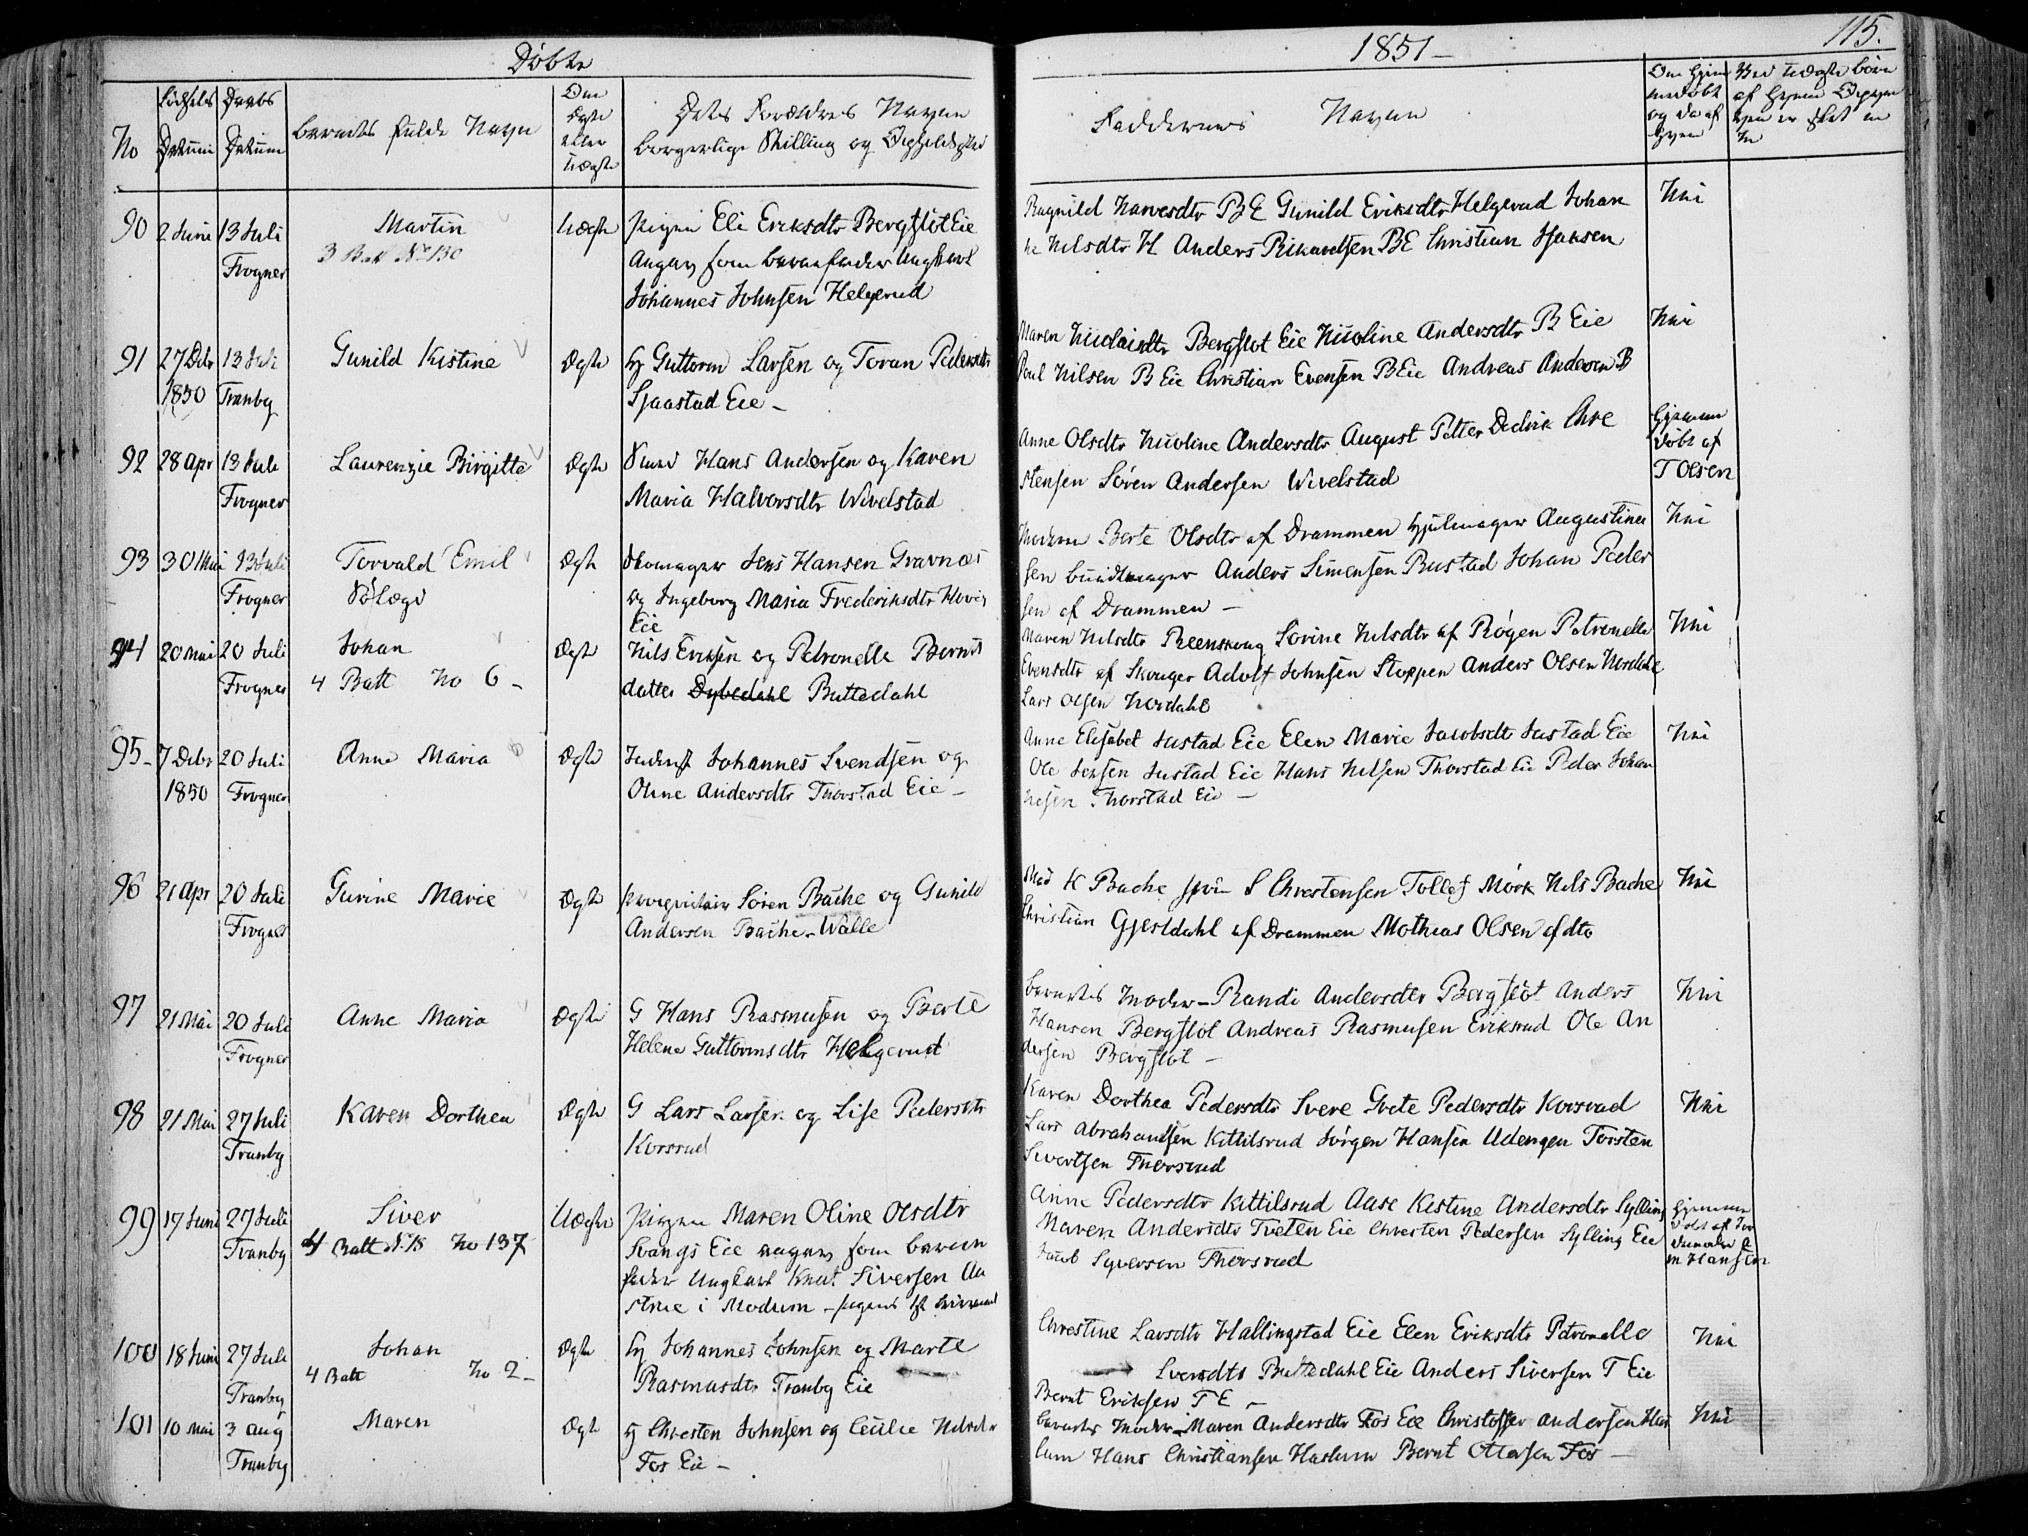 Døbte
1851 –
115.
No
Fødsels Datum
Daabs Datum
Barnets fulde Navn
Om Ægte eller Uægte
Dets Forældres Navne
borgerlige Stilling og Opholdssted
Faddernes Navne
90 2 Juni 13 Juli Frogner
Martin
3 Batt No 130
Uægte
Pigen Eli Eriksdtr Bergflot Eie
Angav som barnefader Ungkarl
Johannes Johnsen Helgerud
Ragnild Narvesdtr B E Gunild Eriksdtr Helgerud Johan
ne Nilsdtr H Anders Rikardsen BE Christian Isaksen
Nei
91 27 Debr 1850 13 Juli Tranby
Gunild Kistine
Ægte
Hj Guttorm Larsen og Toran Pedersdtr
Sjaastad Eie –
Maren Nicolaisdtr Bergflot Eie Nicoline Andersdtr B Eie
Poul Nilsen B Eie Christian Evensen B Eie Andreas Andersen B
Nei
92 28 Apr 13 Juli Frogner
Laurenzie Birgitte
Ægte
Hans Andersen og Karen
Maria Halvorsdtr Wivelstad
Anne Olsdtr Nicoline Andersdtr August Petter Dedrik Chre
stensen Søren Andersen Wivelstad
Hjemme
døbt af
T Olsen
93 30 Mai 13 Juli Frogner
Torvald Emil
Ægte
Skomager Jens Hansen Gravnæs
og Ingeborg Maria Frederiksdtr
Eie
Moderen Berte Olsdtr af Drammen Hjulmager Augustinu
sen Bundtmager Anders Simensen Bustad Johan Peder
sen af Drammen –
Nei
94 20 Mai 20 Juli Frogner
Johan
4 Batt No 6 –
Ægte
Nils Eriksen og Petronelle Bernts
datter Dybedahl Buttedahl
Maren Nilsdtr Reenskoug Sorine Nilsdtr af Røgen Petronelle
Evensdtr af Skouger Adolf Johnsen Stoppen Anders Olsen Nordahl
Lars Olsen Nordahl
Nei
95 – 7 Debr 1850 20 Juli Frogner
Anne Maria
Ægte
Inderst Johannes Svendsen og
Oline Andersdtr Thorstad Eie –
Anne Elisabet Justad Eie Elen Marie Jacobsdtr Justad Eie
Ole Jensen Justad Eie Hans Nilsen Thorstad Eie Peder Johan
nesen Thorstad Eie –
Nei
96 21 Apr 20 Juli Frogner
Gurine Marie
Ægte
Søren Bache og Gunild
Andersen Bache – Walle
Mad K Bache S Chrestensen Tollef Mørk Nils Bache
Christian Gjerldahl af Drammen Mathias Olsen af dto
Nei
97 21 Mai 20 Juli Frogner
Anne Maria
Ægte
G Hans Rasmusen og Berte
Helene Guttormsdtr Helgerud
Barnets Moder – Randi Andersdtr Bergflot Anders
Hansen Bergflot Andreas Rasmusen Eriksrud Ole An
dersen Bergflot –
Nei
98 21 Mai 27 Juli Tranby
Karen Dorthea
Ægte
G Lars Larsen og Lise Pedersdtr
Korsrud
Karen Dorthea Pedersdtr Svere Grete Pedersdtr Korsrud
Lars Abrahamsen Kittilsrud Jørgen Hansen Udengen Torsten
Sivertsen Thorsrud
Nei
99 17 Juni 27 Juli Tranby
Siver
4 Batt No 137
Uægte
Pigen Maren Oline Olsdtr
Svangs Eie angav som barne
fader Ungkarl Knut Siversen Aa
strue i Modum –
Anne Pedersdtr Kittilsrud Aase Kistine Andersdtr Sylling
Maren Andersdtr Tveten Eie Chresten Pedersen Sylling Eie
Jacob Syversen Thorsrud
Hjemme
døbt af Jor
m Hansen
100 18 Juni 27 Juli Tranby
Johan
4 Batt No 2 –
Ægte
Hj Johannes Johnsen og Marte
Rasmusdtr Tranby Eie
Chrestine Larsdtr Hallingstad Eie Elen Eriksdtr Petronelle
Svensdtr Buttedahl Eie Anders Siversen T Eie
Bernt Eriksen T E –
Nei
101 10 Mai 3 Aug Tranby
Maren
Ægte
Hj Chresten Johnsen og Cecilie Nilsdtr
Fos Eie –
Barnets Moder – Maren Andersdtr Fos Eie Christoffer Andersen Has
lum Hans Christiansen Haslum Bernt Ottersen Fos –
Nei